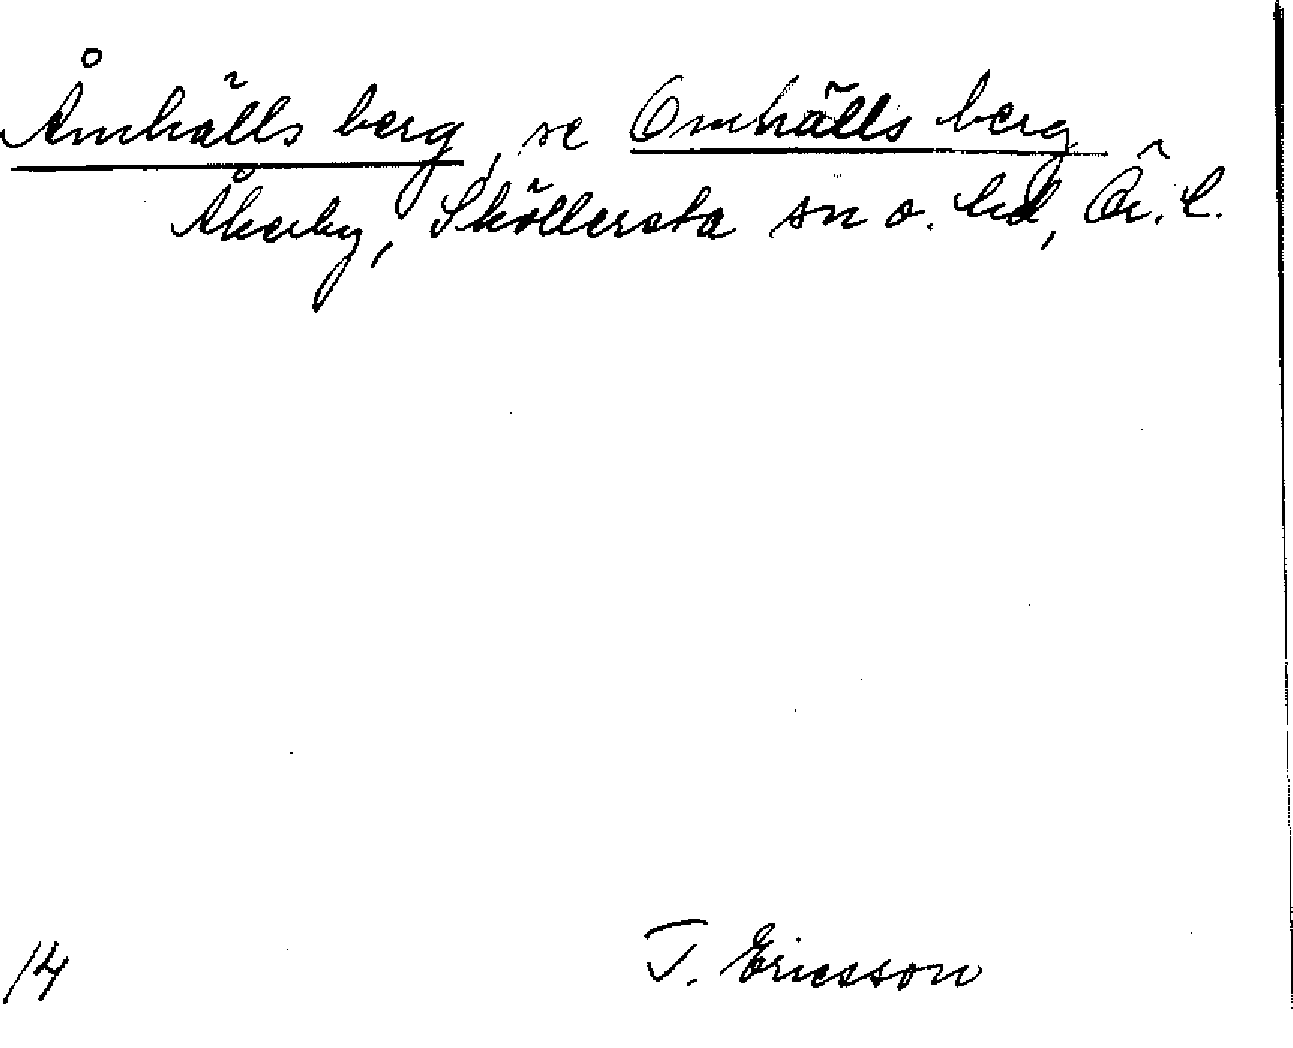 Åmhälls berg, se Omhälls berg
Åkerby, Sköllersta sn o. hd, Ör. l.
14
T. Ericsson